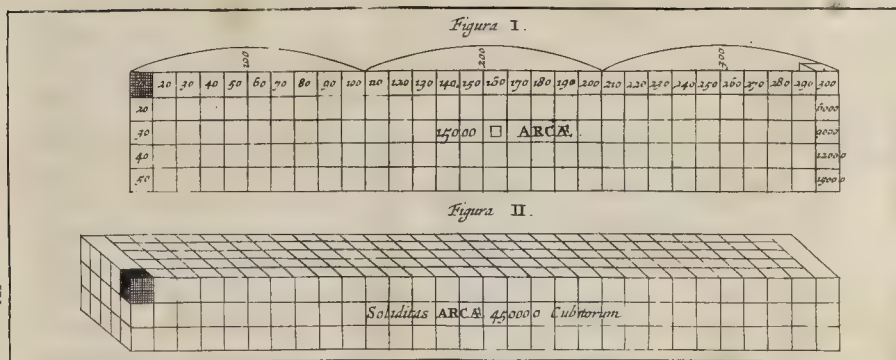 Figura I.
100 200 300
20 30 40 50 60 70 80 90 100 110 120 130 140 150 160 170 180 190 200 210 220 230 240 250 260 270 280 290 300
20 6000
30 15000 □ ARCÆ 9000
40 12000
50 15000
Figura II.
Soliditas ARCÆ 450000 Cubitorum